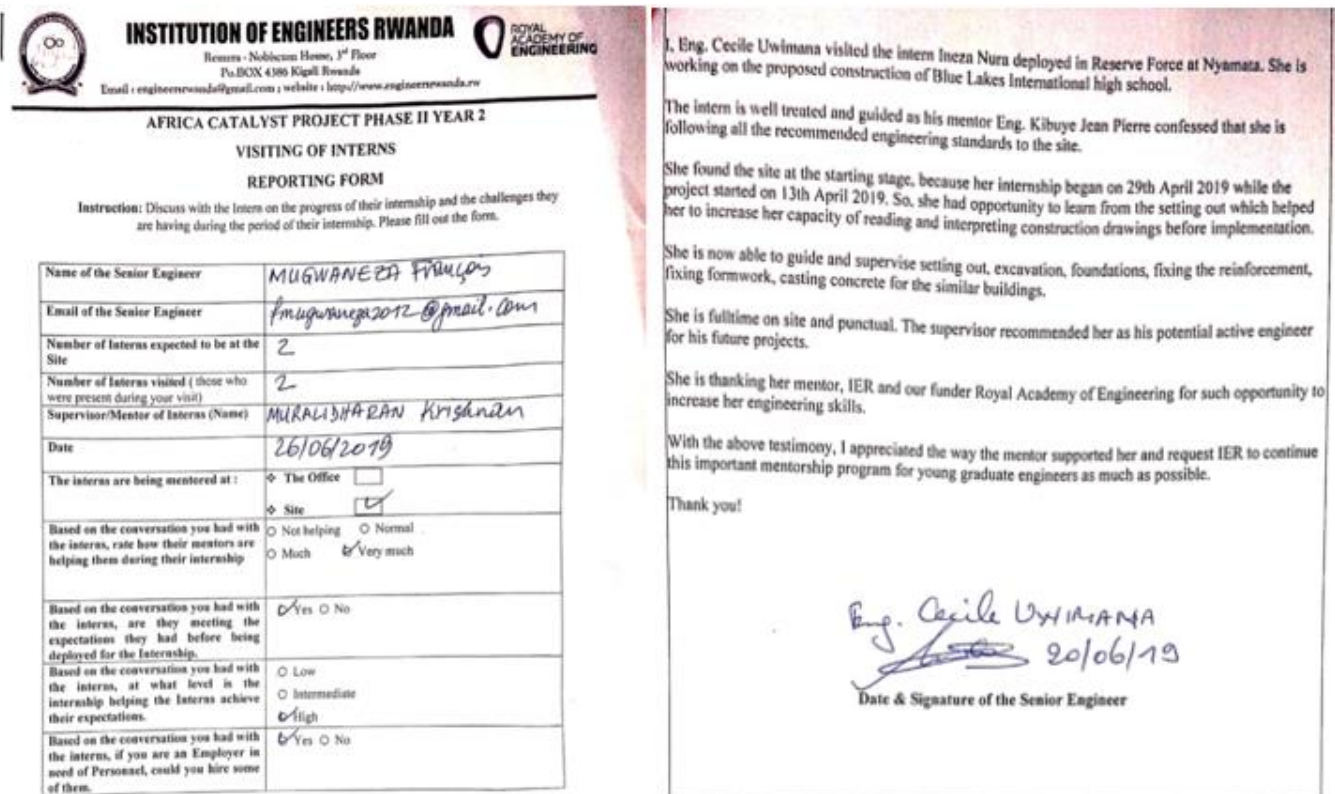 INSTITUTION OF ENGINEERS RWANDA
ROYAL
ACADEMY OF
ENGINEERING
Remera - Nobiscum House, 3rd Floor
Po.BOX 4386 Kigali Rwanda
Email : engineersrwanda@gmail.com ; website : http://www.engineersrwanda.rw
AFRICA CATALYST PROJECT PHASE II YEAR 2
VISITING OF INTERNS
REPORTING FORM
Instruction: Discuss with the Intern on the progress of their internship and the challenges they
are having during the period of their internship. Please fill out the form.
Name of the Senior Engineer
MUGWANEZA François
Email of the Senior Engineer
fmugwaneza2012@gmail.com
Number of Interns expected to be at the
Site
2
Number of Interns visited ( those who
were present during your visit)
2
Supervisor/Mentor of Interns (Name)
MURALIDHARAN Krishnan
Date
26/06/2019
The interns are being mentored at :
The Office
Site
Based on the conversation you had with
the interns, rate how their mentors are
helping them during their internship
Not helping Normal
Much Very much
Based on the conversation you had with
the interns, are they meeting the
expectations they had before being
deployed for the Internship.
Yes No
Based on the conversation you had with
the interns, at what level is the
internship helping the Interns achieve
their expectations.
Low
Intermediate
High
Based on the conversation you had with
the interns, if you are an Employer in
need of Personnel, could you hire some
of them.
Yes No
I, Eng. Cecile Uwimana visited the intern Ineza Nura deployed in Reserve Force at Nyamata. She is
working on the proposed construction of Blue Lakes International high school.
The intern is well treated and guided as his mentor Eng. Kibuye Jean Pierre confessed that she is
following all the recommended engineering standards to the site.
She found the site at the starting stage, because her internship began on 29th April 2019 while the
project started on 13th April 2019. So, she had opportunity to learn from the setting out which helped
her to increase her capacity of reading and interpreting construction drawings before implementation.
She is now able to guide and supervise setting out, excavation, foundations, fixing the reinforcement,
fixing formwork, casting concrete for the similar buildings.
She is fulltime on site and punctual. The supervisor recommended her as his potential active engineer
for his future projects.
She is thanking her mentor, IER and our funder Royal Academy of Engineering for such opportunity to
increase her engineering skills.
With the above testimony, I appreciated the way the mentor supported her and request IER to continue
this important mentorship program for young graduate engineers as much as possible.
Thank you!
Eng. Cecile UWIMANA
20/06/19
Date & Signature of the Senior Engineer